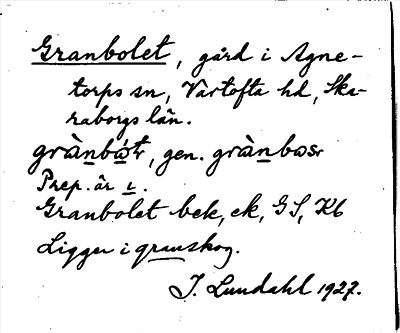 Granbolet, gård i Agne-
torps sn, Vartofta hd, Ska-
raborgs län.
grànbót, gen. grànbosr
Prep. är i.
Granbolet bek, ek, GS, Kb
Ligger i granskog.
J. Lundahl 1927.